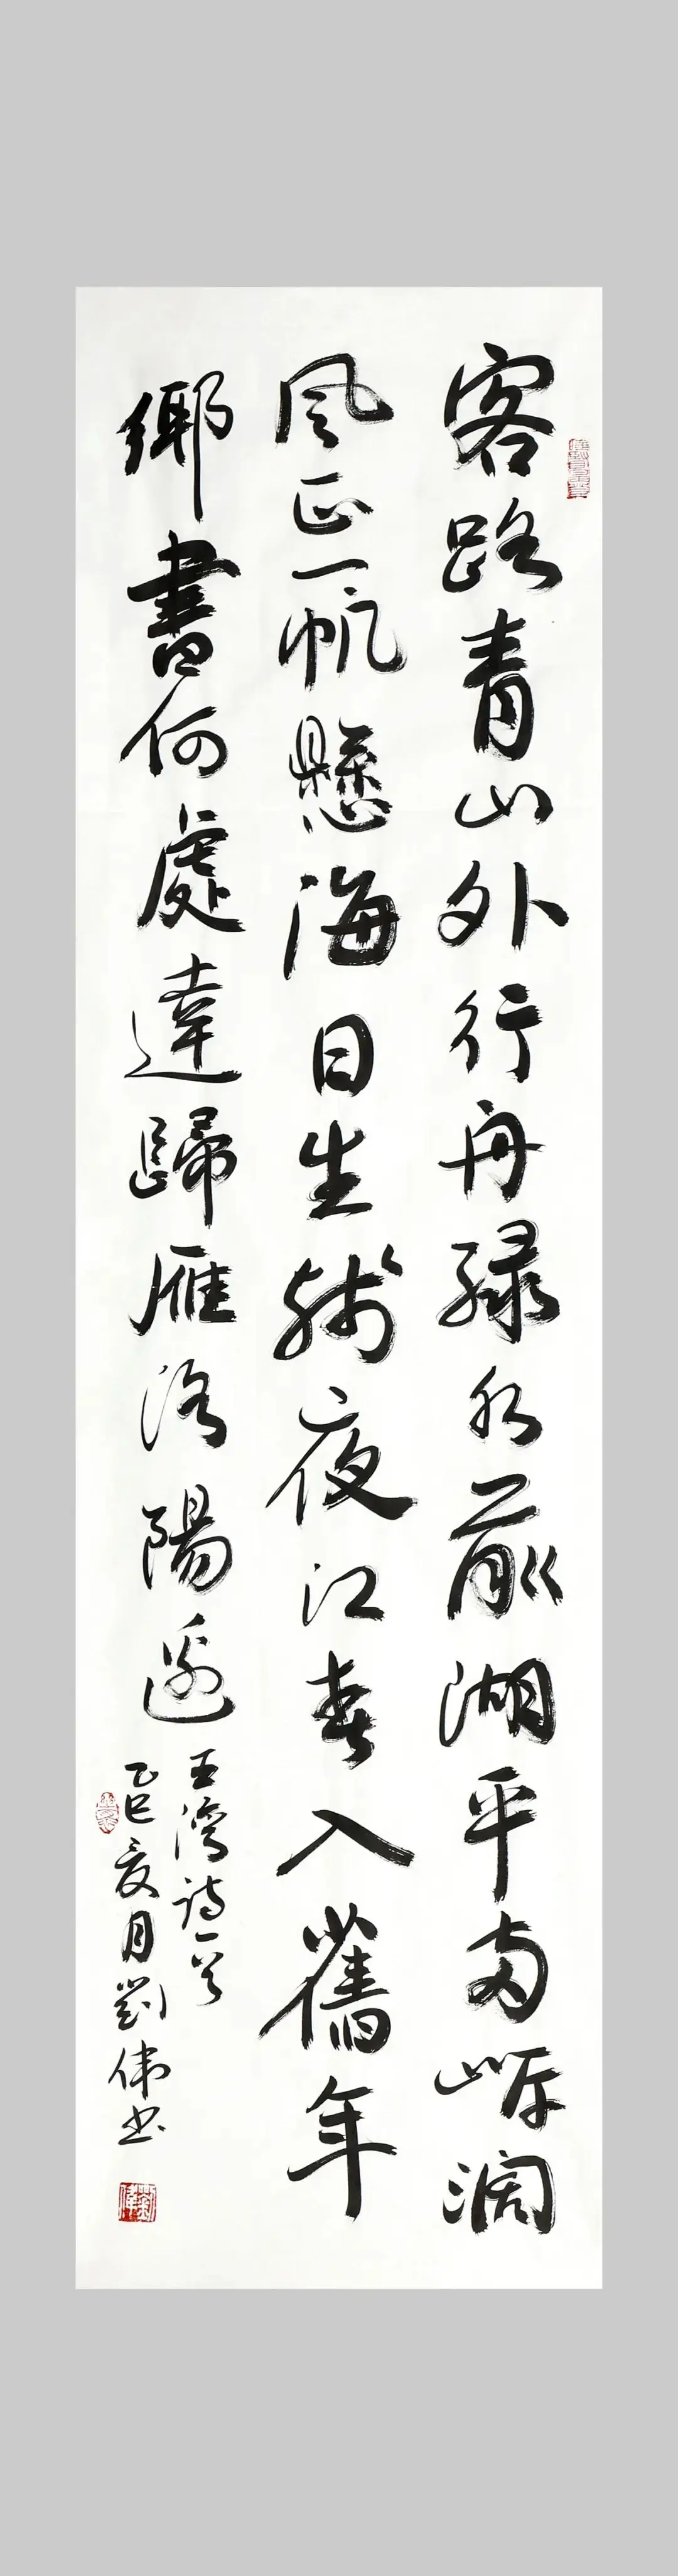 客路青山外行舟緑水前湖平兩岸濶
風正一帆懸海日生殘夜江春入舊年
鄉書何處達歸雁洛陽邊
王灣詩一首
乙巳夏月劉偉书
劉偉